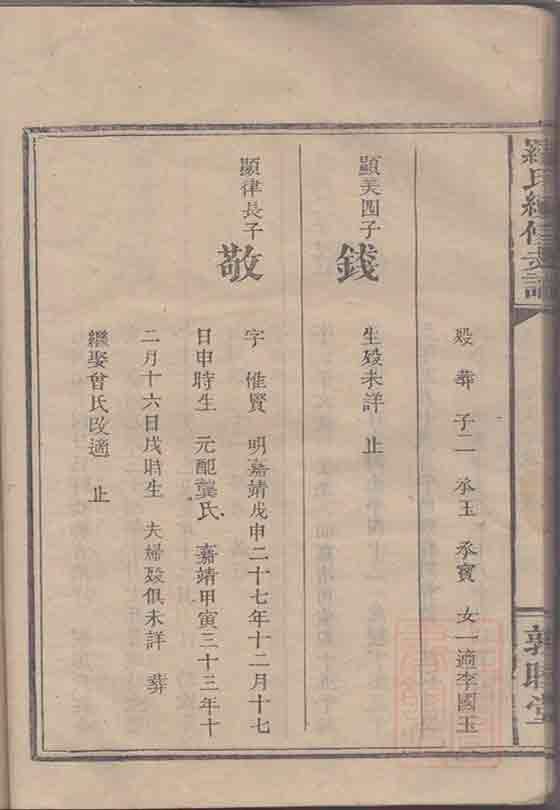 羅氏續修支譜
敦睦堂
歿 葬 子二 承玉 承寳 女一適李國玉
顯美四子
錢
生歿未詳 止
顯律長子
敬
字 惟賢 明嘉靖戊申二十七年十二月十七
日申時生 元配龔氏 嘉靖甲寅三十三年十
二月十六日戌時生 夫婦歿俱未詳 葬
繼娶曾氏改適 止